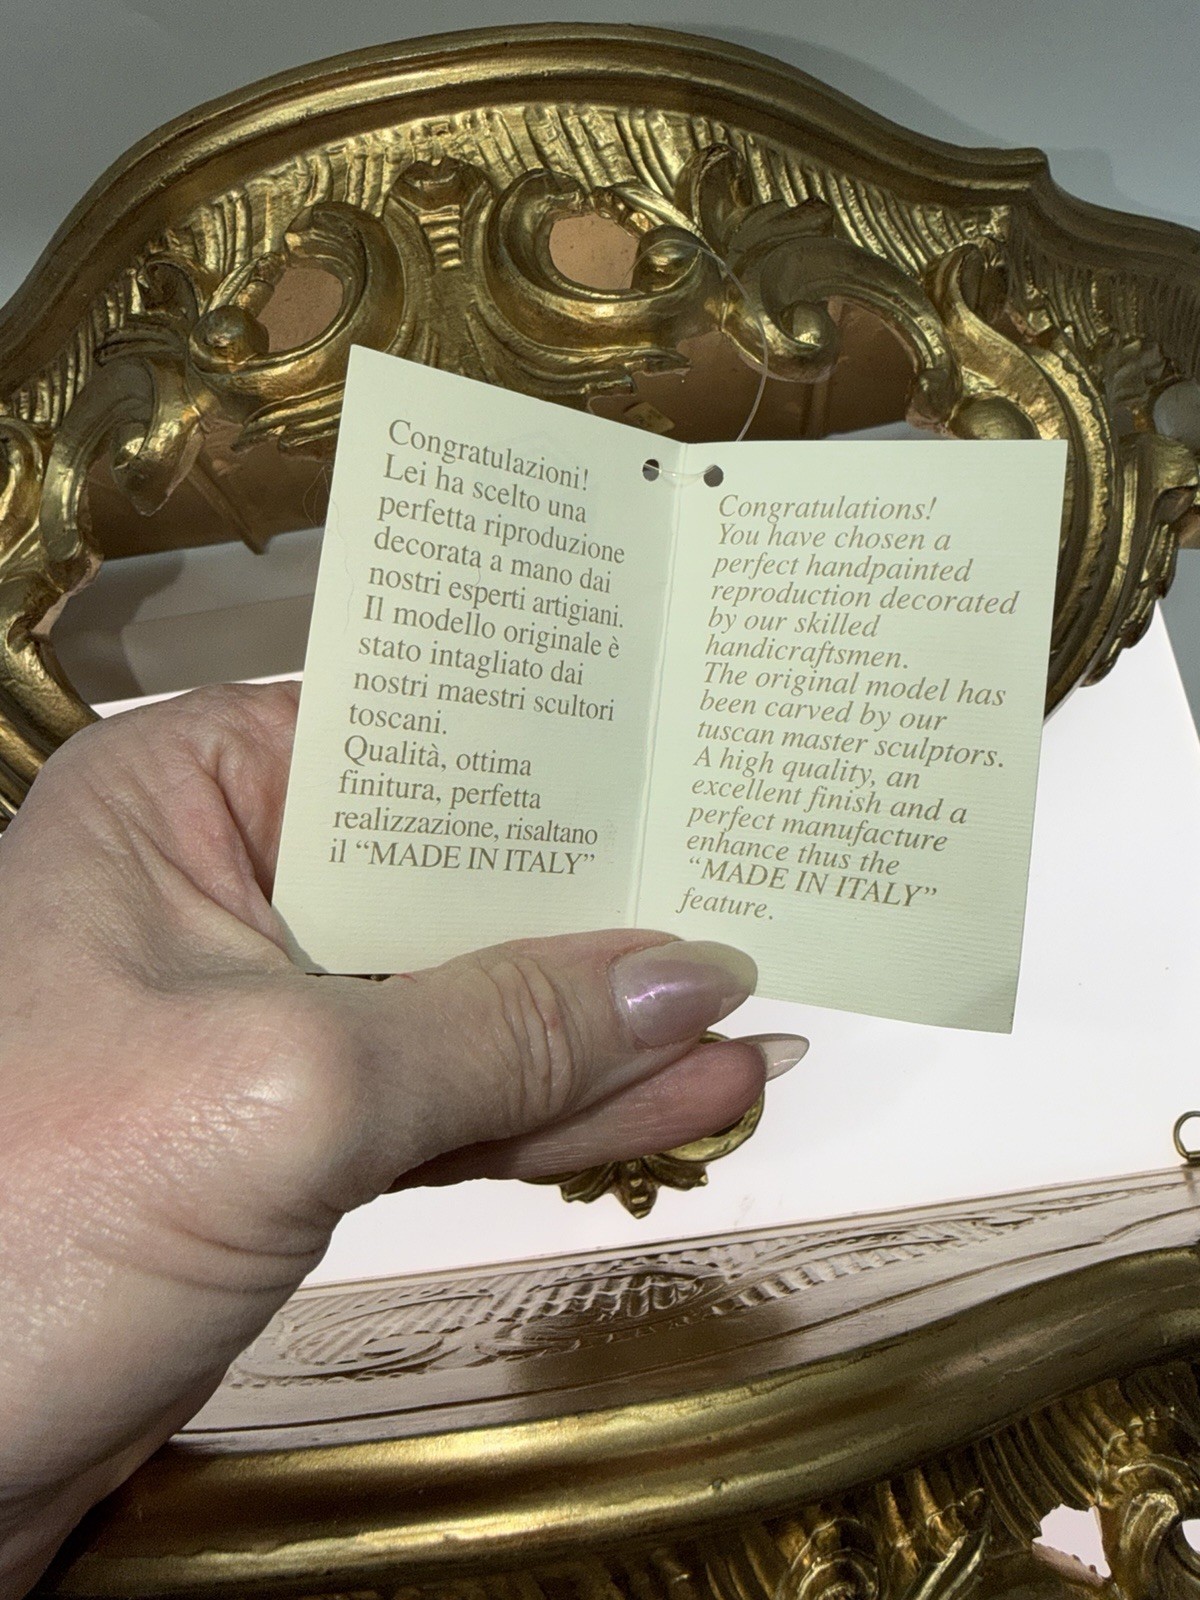 Congratulazioni!
Lei ha scelto una
perfetta riproduzione
decorata a mano dai
nostri esperti artigiani.
Il modello originale è
stato intagliato dai
nostri maestri scultori
toscani.
Qualità, ottima
finitura, perfetta
realizzazione, risaltano
il “MADE IN ITALY”
Congratulations!
You have chosen a
perfect handpainted
reproduction decorated
by our skilled
handicraftsmen.
The original model has
been carved by our
tuscan master sculptors.
A high quality, an
excellent finish and a
perfect manufacture
enhance thus the
“MADE IN ITALY”
feature.